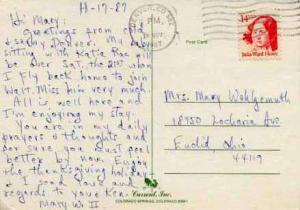 11-17-87
Hi Mary:
Greetings from cold
& snowy Denver. My baby
sitting with Katie Rae will
be over Sat. the 21st when
I fly back home to join
Walt. Miss him very much.
All is well here and
I'm enjoying my stay.
You are in my daily
prayers & thoughts and
for sure you just feel
better by now. Enjoy
the thanksgiving holiday
& love and
regards to you & Ken.
Mary W II
DENVER, CO
PM
NOV
1987
14
Julia Ward Howe
Post Card
Mrs. Mary Wohlgemuth
18950 Locherie Ave.
Euclid Ohio
44119
Current, Inc.
COLORADO SPRINGS, COLORADO 80941